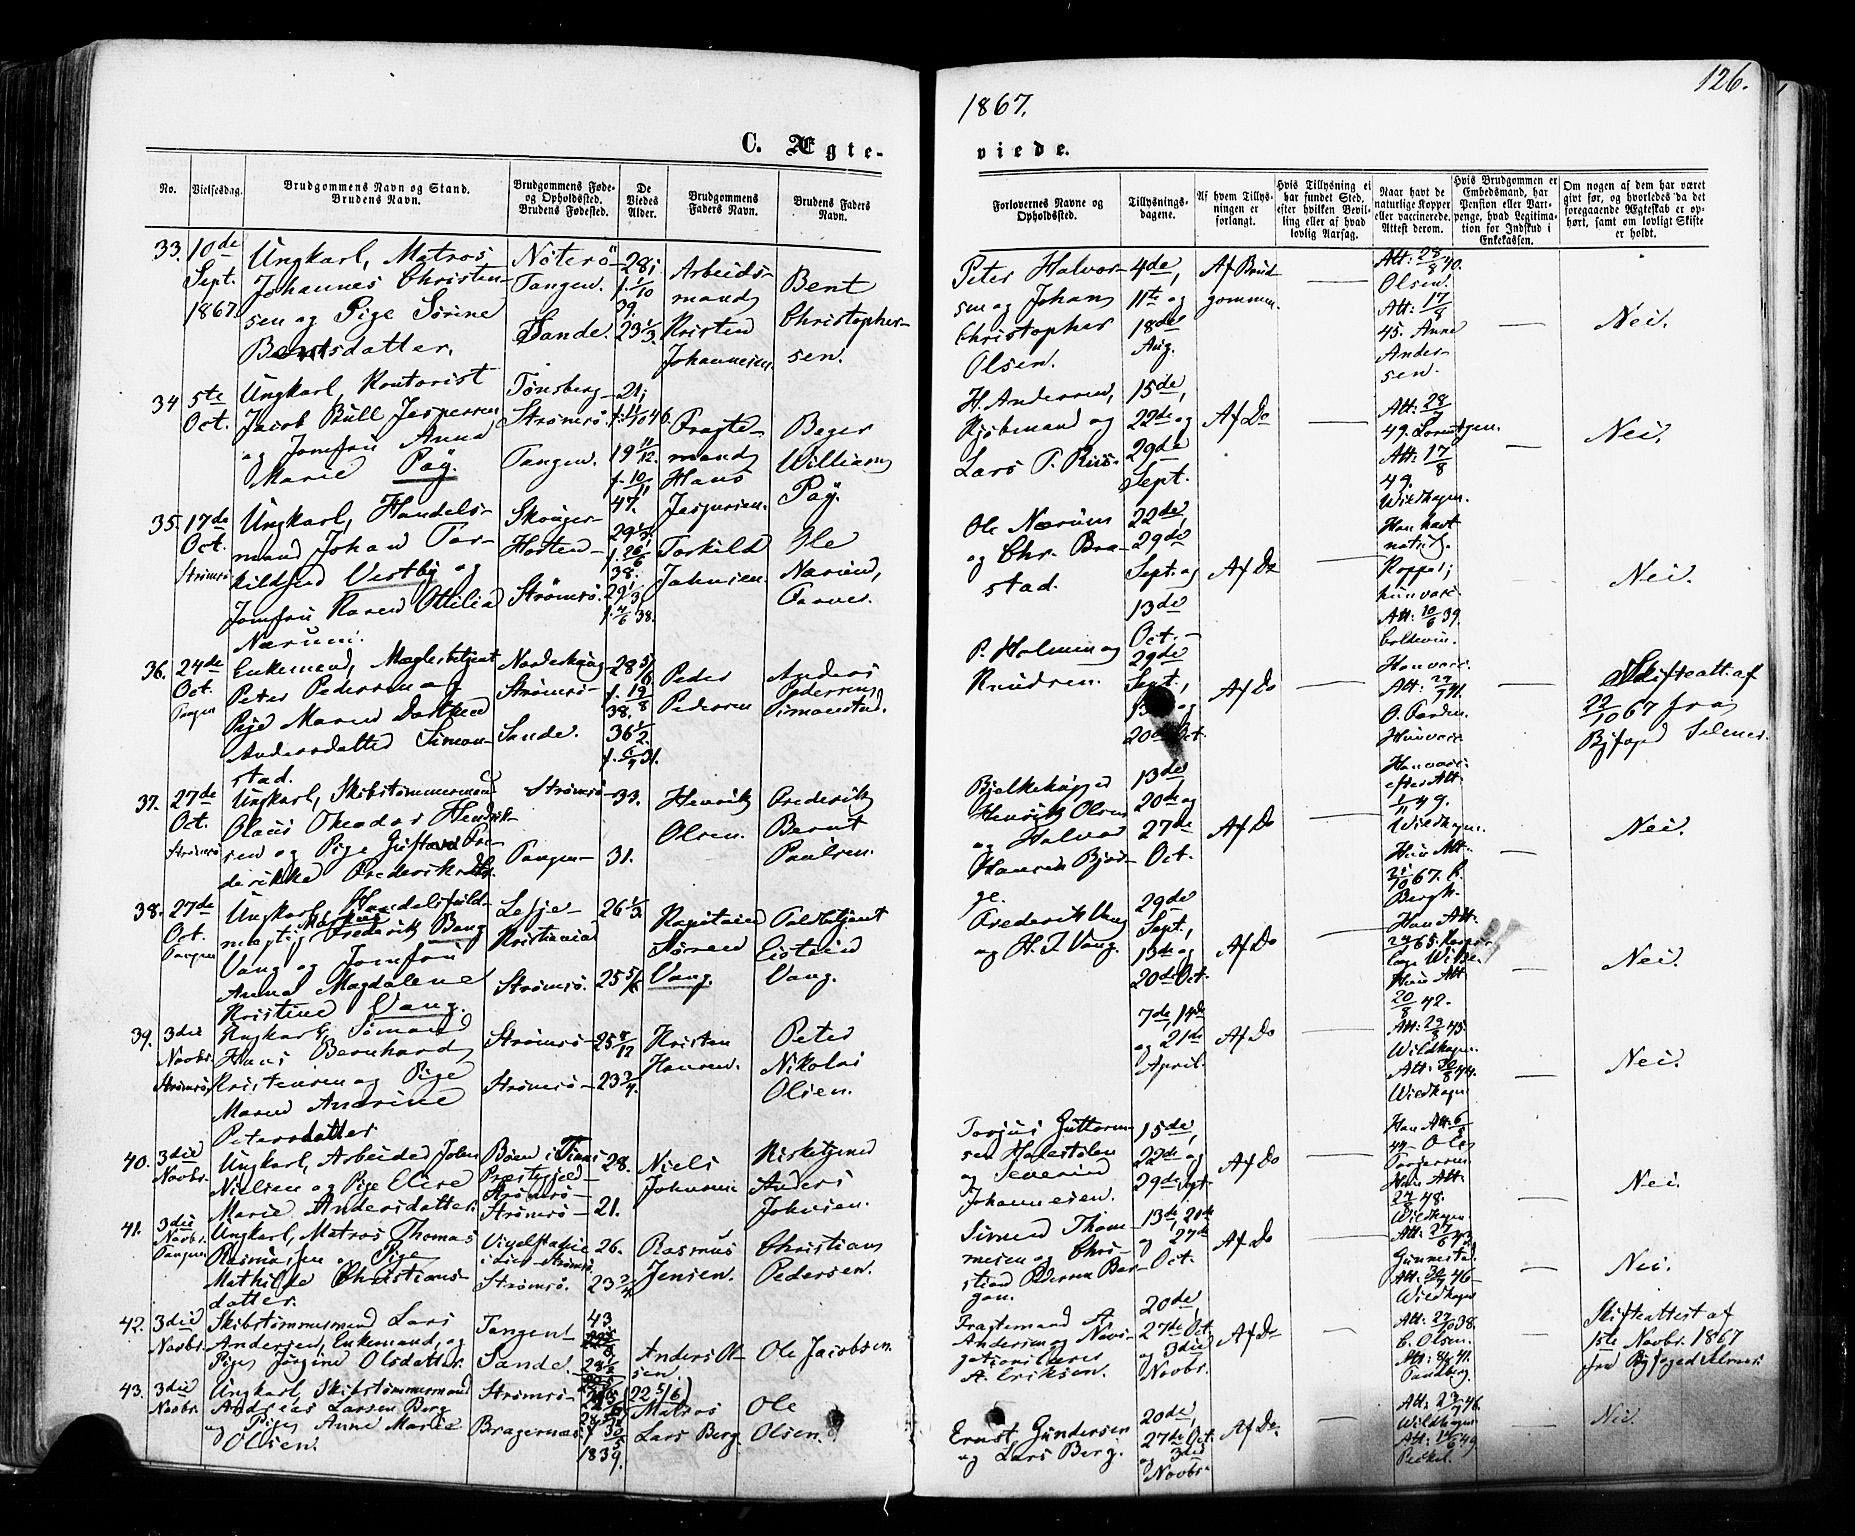 126.
1867.
C. Ægte-
viede.
No.
Vielsesdag.
Brudgommens Navn og Stand.
Brudens Navn.
Brudgommens Føde-
og Opholdssted.
Brudens Fødested.
De
Viedes
Alder.
Brudgommens
Faders Navn.
Brudens Faders
Navn.
Forlovernes Navne og
Opholdssted.
Tillysnings-
dagene.
Af hvem Tillys-
ningen er
forlangt.
Hvis Tillysning ei
har fundet Sted,
efter hvilken Bevil-
ling eller af hvad
lovlig Aarsag.
Naar havt de
naturlige Kopper
eller vaccinerede.
Attest derom.
Hvis Brudgommen er
Embedsmand, har
Pension eller Vart-
penge, hvad Legitima-
tion for Indskud i
Enkekassen.
Om nogen af dem har været
gift før, og hvorledes da det
foregaaende Ægteskab er op-
hørt, samt om lovligt Skifte
er holdt.
33. 10de
Sept.
1867.
Ungkarl, Matros
Johannes Christen-
sen og Pige Sørine
Berntsdatter.
Nöterö-
Tangen.
Sande.
28;
f. 1/10
39.
23 1/3.
Arbeids-
mand
Kristen
Johannesen.
Bent
Christopher-
sen.
Peter Halvor-
sen og Johan
Christopher
Olsen.
4de,
11te og
18de
Aug.
Af Brud-
gommen.
Att: 28/8 40.
Olsen.
Att: 17/8
45. Anne
Ander-
sen.
Nei.
34 5te
Oct.
Ungkarl, Kontorist
Jacob Bull Jespersen
og Jomfru Anna
Marie Paÿ.
Tønsberg-
Strömsö.
Tangen.
21;
f. 11/10 46.
19 11/12.
f. 10/11
47.
Fragte-
mand
Hans
Jespersen.
Bager
William
Paÿ.
H. Andersen,
Kjöbmand og
Lars T. Riis.
15de,
22de og
29de
Sept.
Af Do
Att: 28/7
49. Lorentzen.
Att: 17/8
49.
Wildhagen.
Nei.
35. 17de
Oct.
Strömsö
Ungkarl, Handels-
mand Johan Tor-
kildsen Vestby og
Jomfru Karen Ottilia
Nærum.
Skouger-
Horten-
Strømsö.
f. 26/6
38.
29 1/3
f. 4/6 38.
Torkild
Johnsen
Ole
Nærum,
Farver.
Ole Nærum
og Chr. Bra-
stad.
22de,
29de
Sept. og
13de
Oct. -
Af Do
Han havt
naturl.
Kopper;
hun vacc.
Att: 10/6 39.
Nei.
36. 24de
Oct.
Tangen
Enkemand, Mæglerbetjent
Peter Pedersen og
Pige Maren Dorthea
Andersdatter Simon-
stad.
Strömsö-
Sande.
28 5/6
f. 19/8
38.
36 1/2.
Peder
Pedersen
Anders
Pedersen
Simonstad.
P. Holmen og
Knudsen.
29de
Sept.,
13de og
20de Oct.
Af Do
Han vacc.
Hun vacc.
Skifteatt. af
22/10 67 fra
Byfoged Selmer.
37. 27de
Oct.
Strömsö
Ungkarl, Skibstømmermand
Olaus Theodor Hendrik-
sen og Pige Gustava Fre-
derikke Frederiksdtr.
Strömsö-
Tangen-
33.
31.
Henrik
Olsen.
Frederik
Bernt
Paulsen.
Bjelkehugger
Henrik Olsen
og Halvor
Hansen Bjør-
ge.
13de,
20de og
27de
Oct.
Af Do
Han vacc.
efter Att.
1/11 49.
Wildhagen.
Hun Att.
21/10 67. C.
Bergh.
Nei.
38. 27de
Oct.
Tangen
Ungkarl, Handelsfuld-
mægtig Markus Frederik Bang
Vang og Jomfru
Anna Magdalene
Kristine Vang.
Lesje-
Kristiania
Strömsö.
26 1/3.
25 5/6
Kapitain
Søren
Vang.
Toldbetjent
Eistein
Vang.
Frederik Vang
og H. J. Vang.
29de
Sept.,
13de og
20de Oct.
Af Do
Han Att.
Hun Att.
20/8 42.
Nei.
39. 3die
Novbr.
Strömsö
Ungkarl, Sømand
Hans Bernhard
Kristensen og Pige
Maren Andrine
Petersdatter
Strömsö-
Strömsö-
25 8/12
23 3/4.
Kristen
Hansen.
Peter
Nikolai
Olsen.
7de, 14de
og 21de
April.
Af Do
Att: 29/8 43.
Wildhagen.
Att: 30/8 44.
Wildhagen
Nei.
40. 3die
Novbr.
Ungkarl, Arbeider John
Nielsen og Pige Elise
Marie Andersdatter.
Böen i Tinns
Præstegjeld-
Strömsö-
Strömsö-
28.
21.
Niels
Johnsen
Anders
Johnsen.
Torjus Guttorm-
sen Hakestolen
og Severin
Johannesen.
15de,
22de og
29de Sept.
Af Do
Hun Att.
27/8 48.
Wildhagen
Nei.
41. 3die
Novbr.
Tangen
Ungkarl, Matros Thomas
Rasmussen og Pige
Mathilde Christians-
datter.
i Lier-Strömsö.
Strömsö.
26.
23 3/4
Rasmus
Jensen.
Christian
Pedersen.
Simen Thom-
mesen og Chri-
stian Pedersen Ber-
gan.
13de, 20de
og 27de
Oct.
Af Do
Wildhagen
Nei.
42. 3die
Novbr.
Skibstømmermand Lars
Andersen, Enkemand, og
Pige Jörgine Olsdatter.
Tangen
Sande.
43
28 1/2
Anders Ol-
sen.
Ole Jacobsen.
Fragtemand A.
Andersen og Navi-
gationslærer
A. Eriksen.
20de,
27de Oct.
og 3die
Novbr.
Af Do
C. Olsen.
Skifteattest af
1ste Novbr. 1867
fra Byfoged Selmer.
43. 3die
Novbr.
Ungkarl, Skibstømmermand
Andreas Larsen Berg
og Pige Anne Marie
Olsen.
Strömsö-
Bragernæs.
(22 5/6)
1839.
Matros
Lars Berg.
Ole
Olsen.
Ernst Gundersen
og Lars Berg.
20de,
27de Oct.
og 3die
Novbr.
Af Do
Wildhagen
Nei.